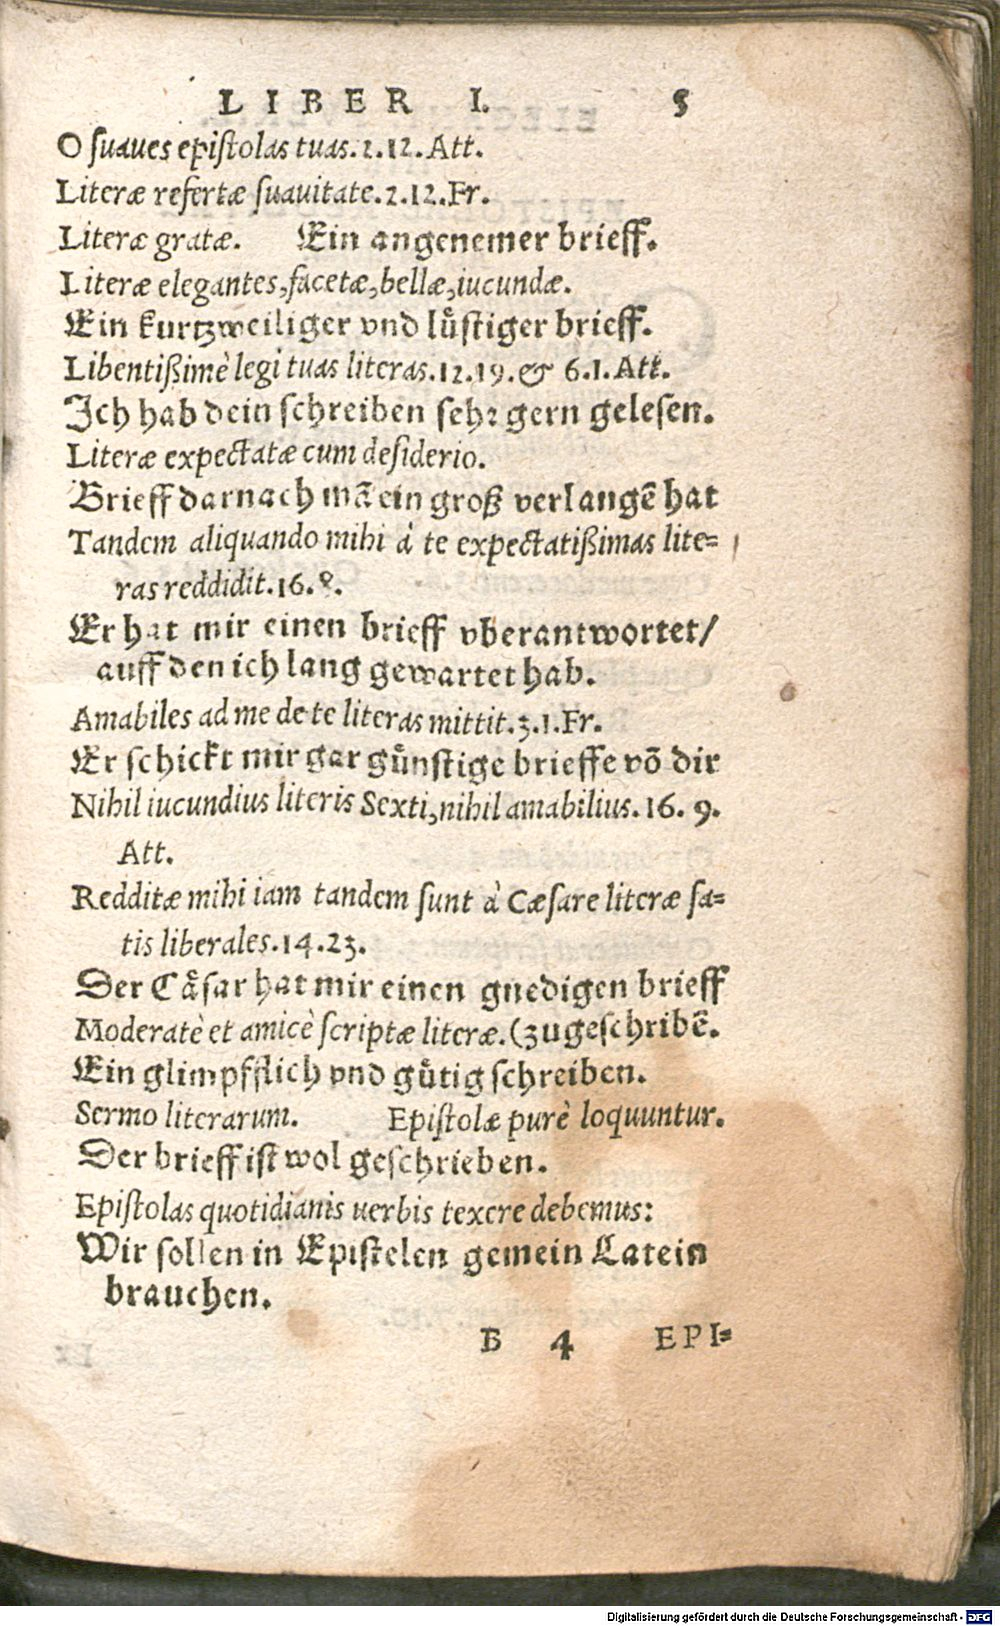 LIBER I. 5
O suaues epistolas tuas. 2.12. Att.
Literæ refertæ suauitate. 2.12. Fr.
Literæ gratæ. Ein angenemer brieff.
Literæ elegantes, facetæ, bellæ, iucundæ.
Ein kurtzweiliger vnd lůstiger brieff.
Libentißimè legi tuas literas. 12.19. & 6.1. Att.
Ich hab dein schreiben sehr gern gelesen.
Literæ expectatæ cum desiderio.
Brieff darnach mã ein groß verlangẽ hat
Tandem aliquando mihi à te expectatißimas lite=
ras reddidit. 16. 8.
Er hat mir einen brieff vberantwortet/
auff den ich lang gewartet hab.
Amabiles ad me de te literas mittit. 3.1. Fr.
Er schickt mir gar gůnstige brieffe võ dir
Nihil iucundius literis Sexti, nihil amabilius. 16. 9.
Att.
Redditæ mihi iam tandem sunt à Cæsare literæ sa=
tis liberales. 14. 23.
Der Cåsar hat mir einen gnedigen brieff
Moderatè et amicè scriptæ literæ. (zugeschribẽ.
Ein glimpfflich vnd gůtig schreiben.
Sermo literarum. Epistolæ purè loquuntur.
Der brieff ist wol geschrieben.
Epistolas quotidianis uerbis texere debemus:
Wir sollen in Epistelen gemein Latein
brauchen.
B 4 EPI=
Digitalisierung gefördert durch die Deutsche Forschungsgemeinschaft - DFG